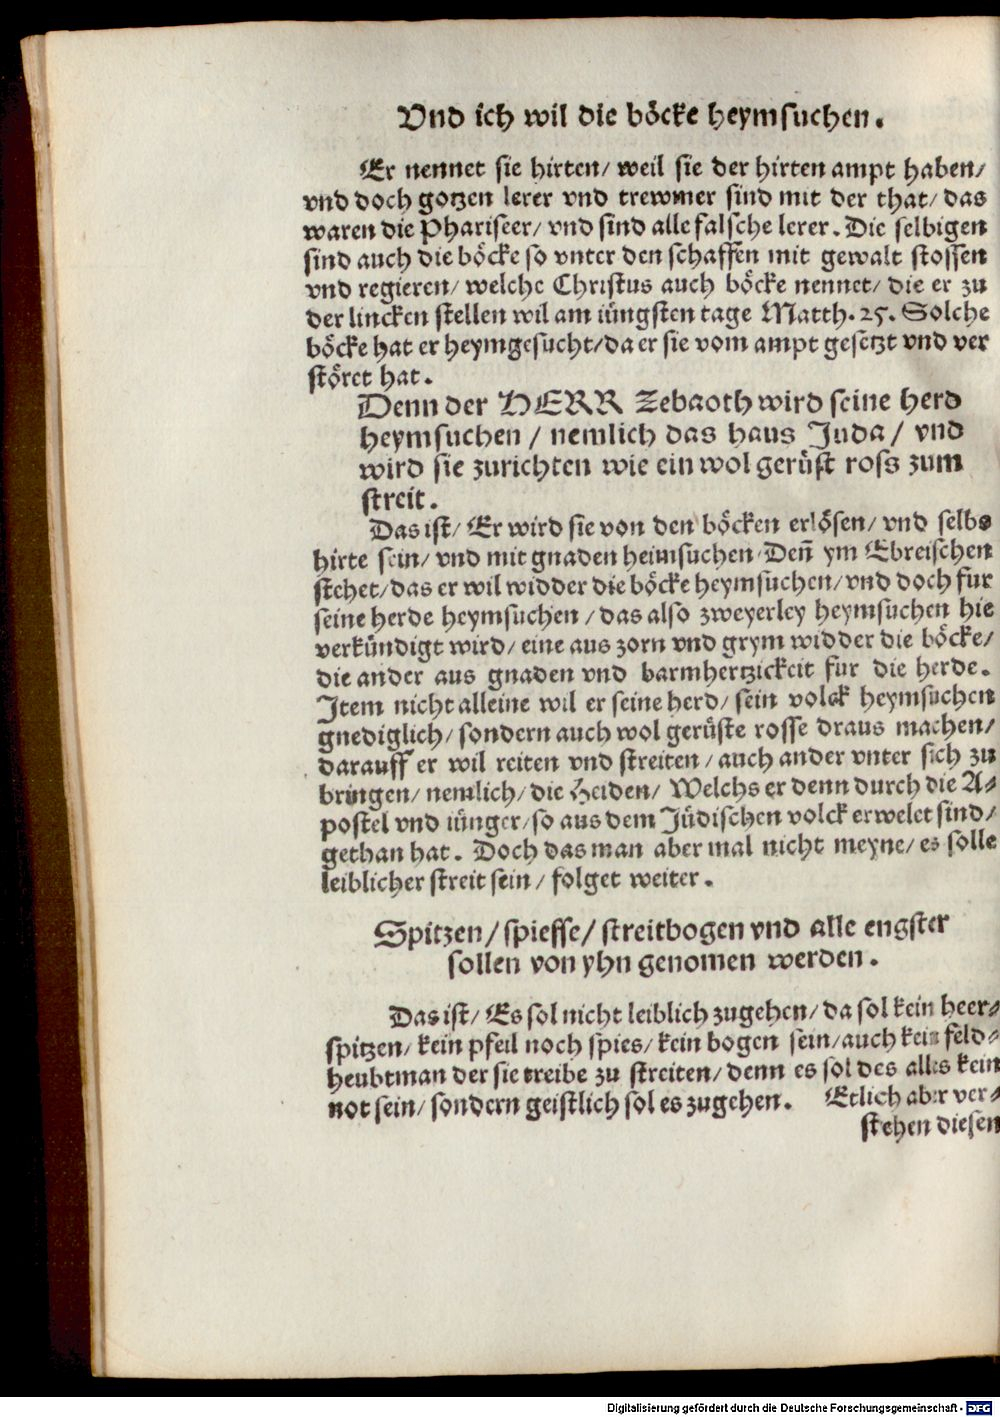 Vnd ich wil die böcke heymsuchen.
Er nennet sie hirten/ weil sie der hirten ampt haben/
vnd doch gotzen lerer vnd trewmer sind mit der that/ das
waren die Phariseer/ vnd sind alle falsche lerer. Die selbigen
sind auch die böcke so vnter den schaffen mit gewalt stossen
vnd regieren/ welche Christus auch böcke nennet/ die er zu
der lincken stellen wil am iüngsten tage Matth. 25. Solche
böcke hat er heymgesucht/ da er sie vom ampt gesetzt vnd ver
störet hat.
Denn der HERR Zebaoth wird seine herd
heymsuchen / nemlich das haus Juda/ vnd
wird sie zurichten wie ein wol gerüst ross zum
streit.
Das ist/ Er wird sie von den böcken erlösen/ vnd selbs
hirte sein/ vnd mit gnaden heimsuchen Deñ ym Ebreischen
stehet/ das er wil widder die böcke heymsuchen/ vnd doch fur
seine herde heymsuchen / das also zweyerley heymsuchen hie
verkündigt wird/ eine aus zorn vnd grym widder die böcke/
die ander aus gnaden vnd barmhertzickeit fur die herde.
Item nicht alleine wil er seine herd/ sein volck heymsuchen
gnediglich/ sondern auch wol gerüste rosse draus machen/
darauff er wil reiten vnd streiten / auch ander vnter sich zu
bringen/ nemlich/ die Heiden/ Welchs er denn durch die A⸗
postel vnd iünger/ so aus dem Jüdischen volck erwelet sind/
gethan hat. Doch das man aber mal nicht meyne/ es solle
leiblicher streit sein / folget weiter.
Spitzen/ spiesse/ streitbogen vnd alle engster
sollen von yhn genomen werden.
Das ist/ Es sol nicht leiblich zugehen/ da sol kein heer⸗
spitzen/ kein pfeil noch spies/ kein bogen sein/ auch kein feld⸗
heubtman der sie treibe zu streiten/ denn es sol des alles kein
not sein/ sondern geistlich sol es zugehen. Etlich aber ver⸗
stehen diesen
Digitalisierung gefördert durch die Deutsche Forschungsgemeinschaft - DFG